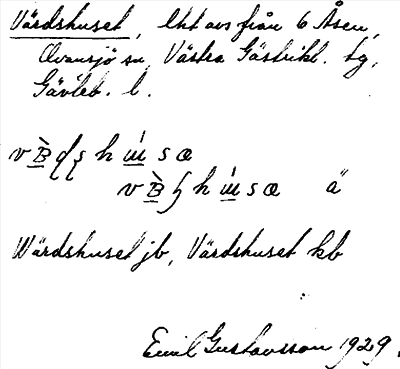 Värdshuset, lht avs från 6 Åsen,
Ovansjö sn, Västra Gästrikl. tg,
Gävleb. l.
v h s
v h s ä
Wärdshuset jb, Värdshuset kb
Emil Gustavsson 1929.